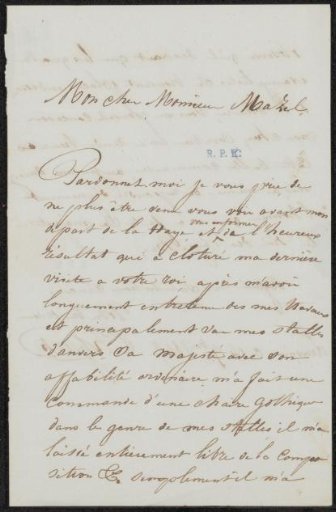 Mon cher Monsieur Mazel.
R.P.K.
Pardonnet moi je vous prie de
ne plus être venu vous voir avant mon
départ de la Haye et vous informé de l'heureux
résultat qui à cloturé ma dernière
visite a votre roi après m'avoir
longuement entretenu des mes travaux
et principalement vu mes stalles
d'anvers Sa majesté avec son
affabilité ordinaire m'a fait une
commande d'une chaire gothique
dans le genre de mes stalles il m'a
laissé entièrement libre de la compo
sition & simplement il m'a